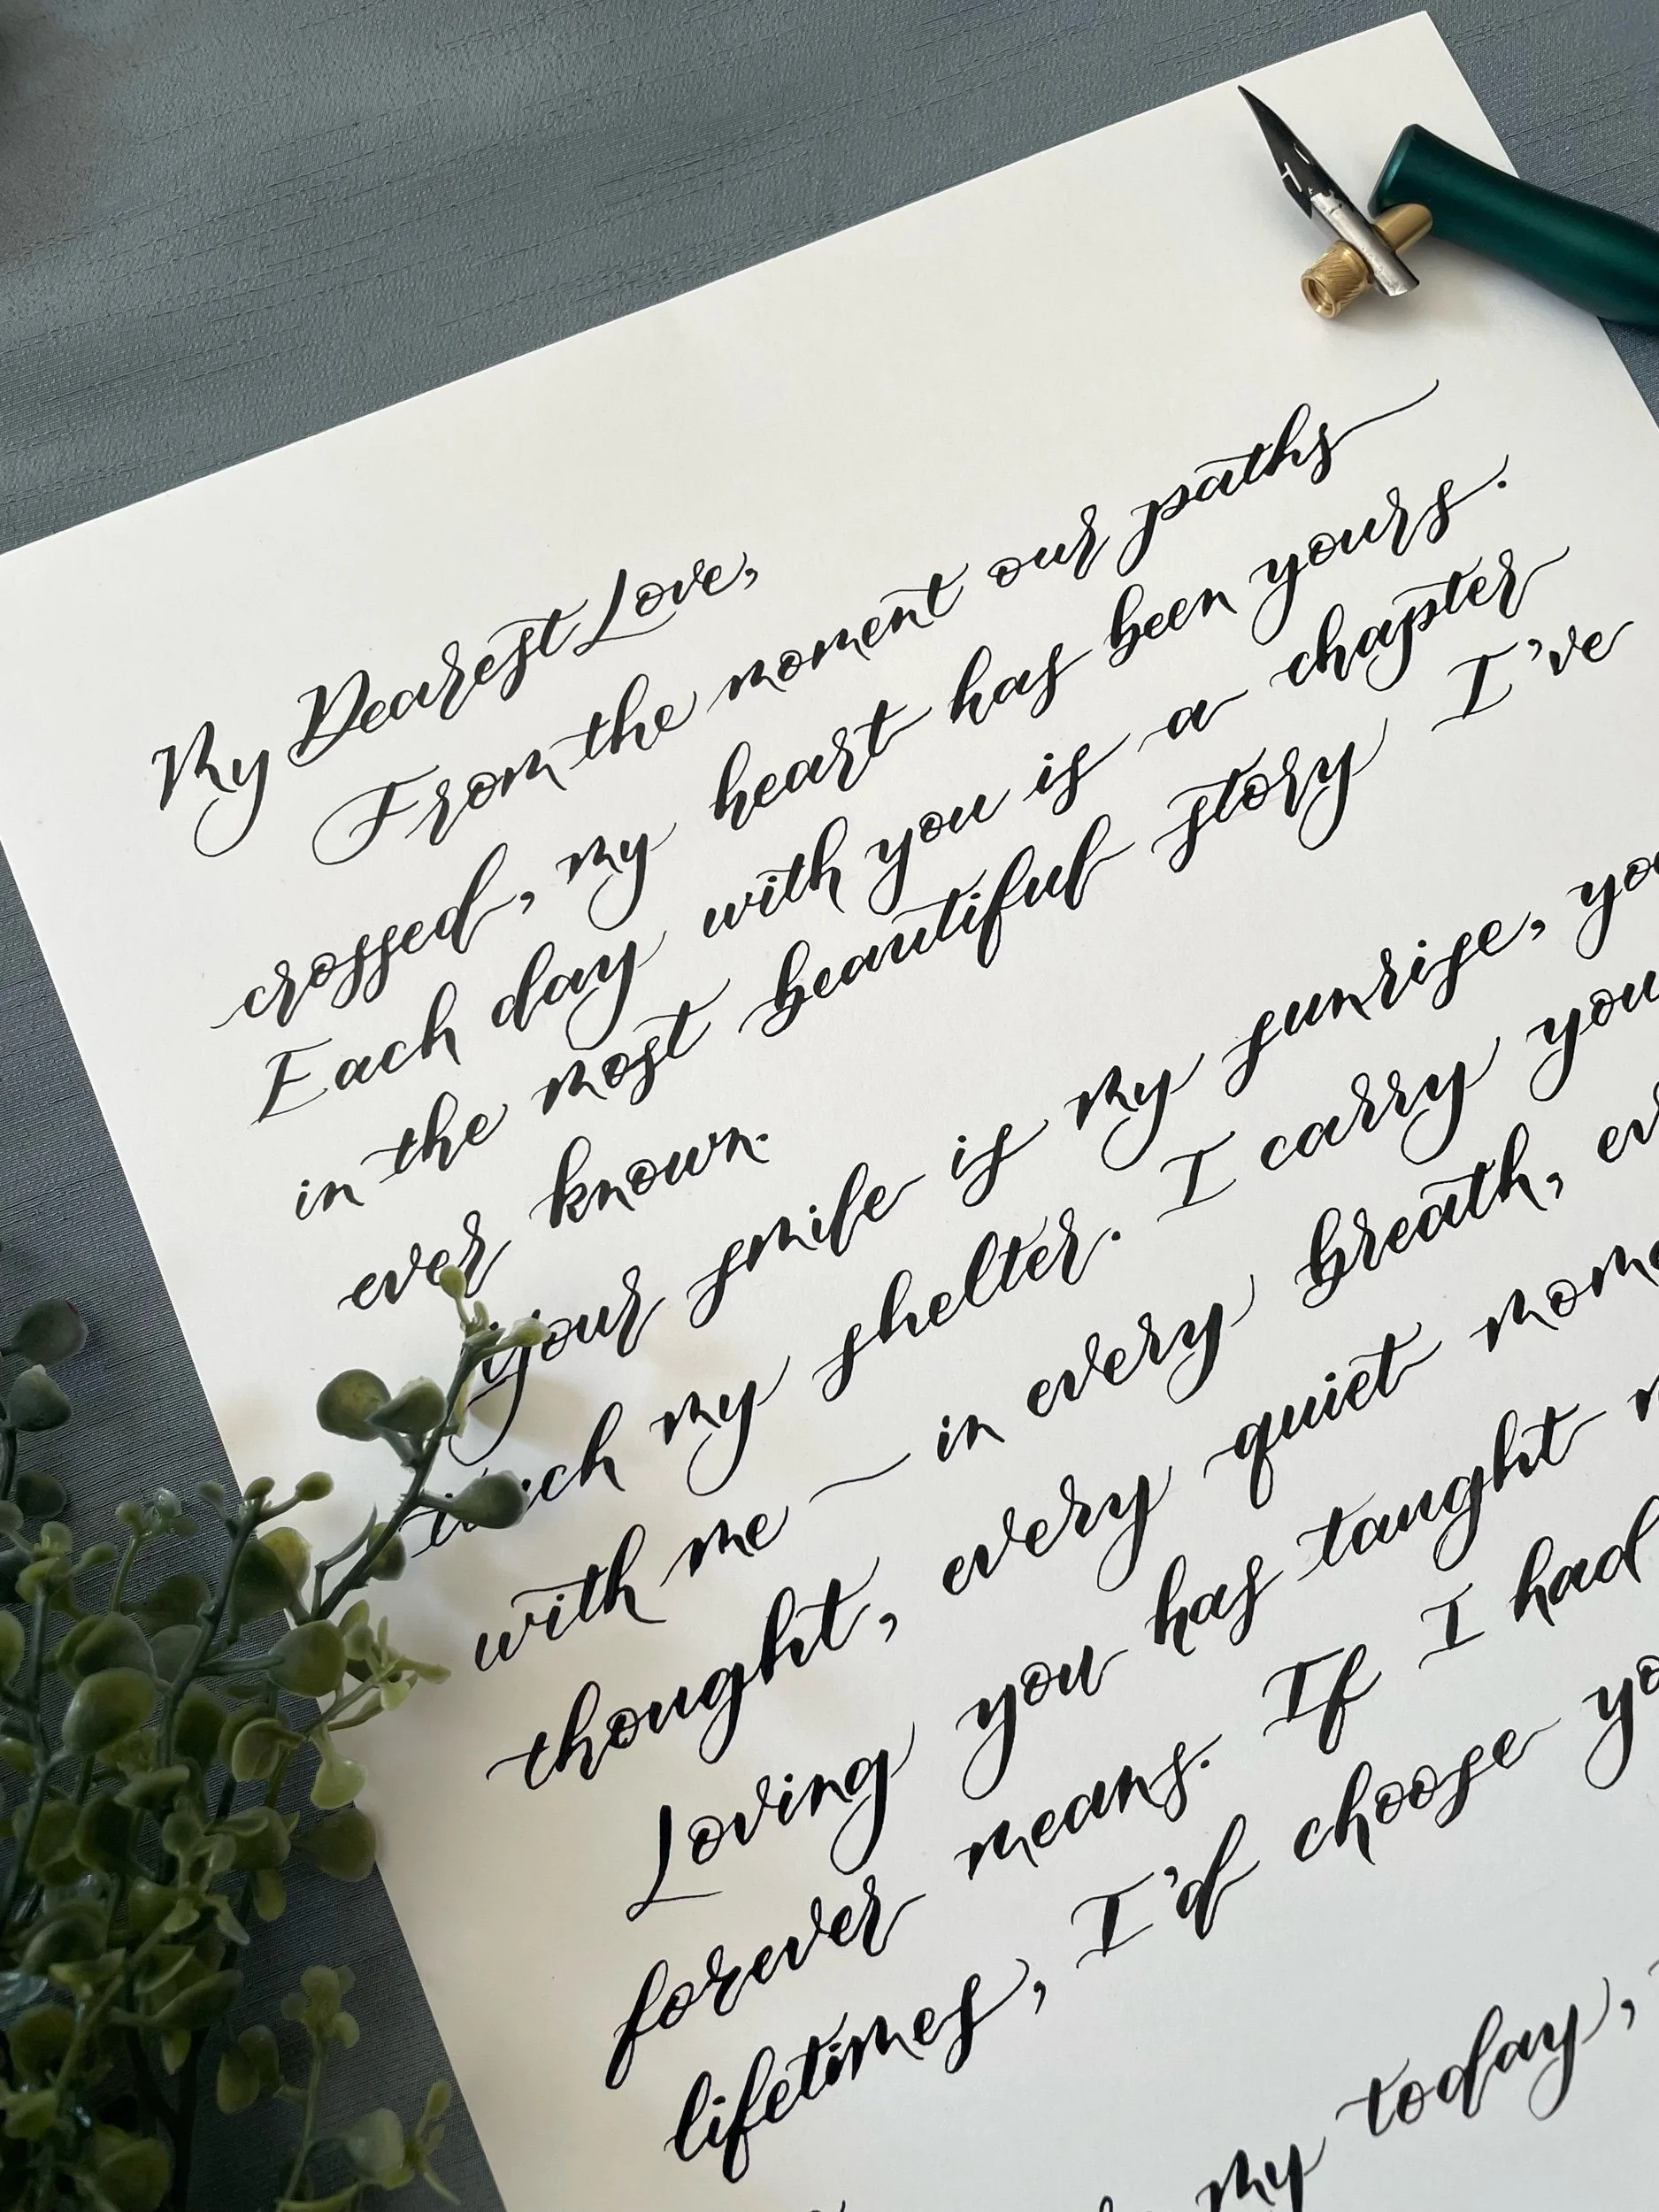 My Dearest Love,
From the moment our paths
crossed, my heart has been yours.
Each day with you is a chapter
in the most beautiful story I've
ever known.
your smile is my sunrise,
my shelter. I carry
with me — in every breath,
thought, every quiet
Loving you has taught
forever means. If I had
lifetimes, I'd choose
my today,